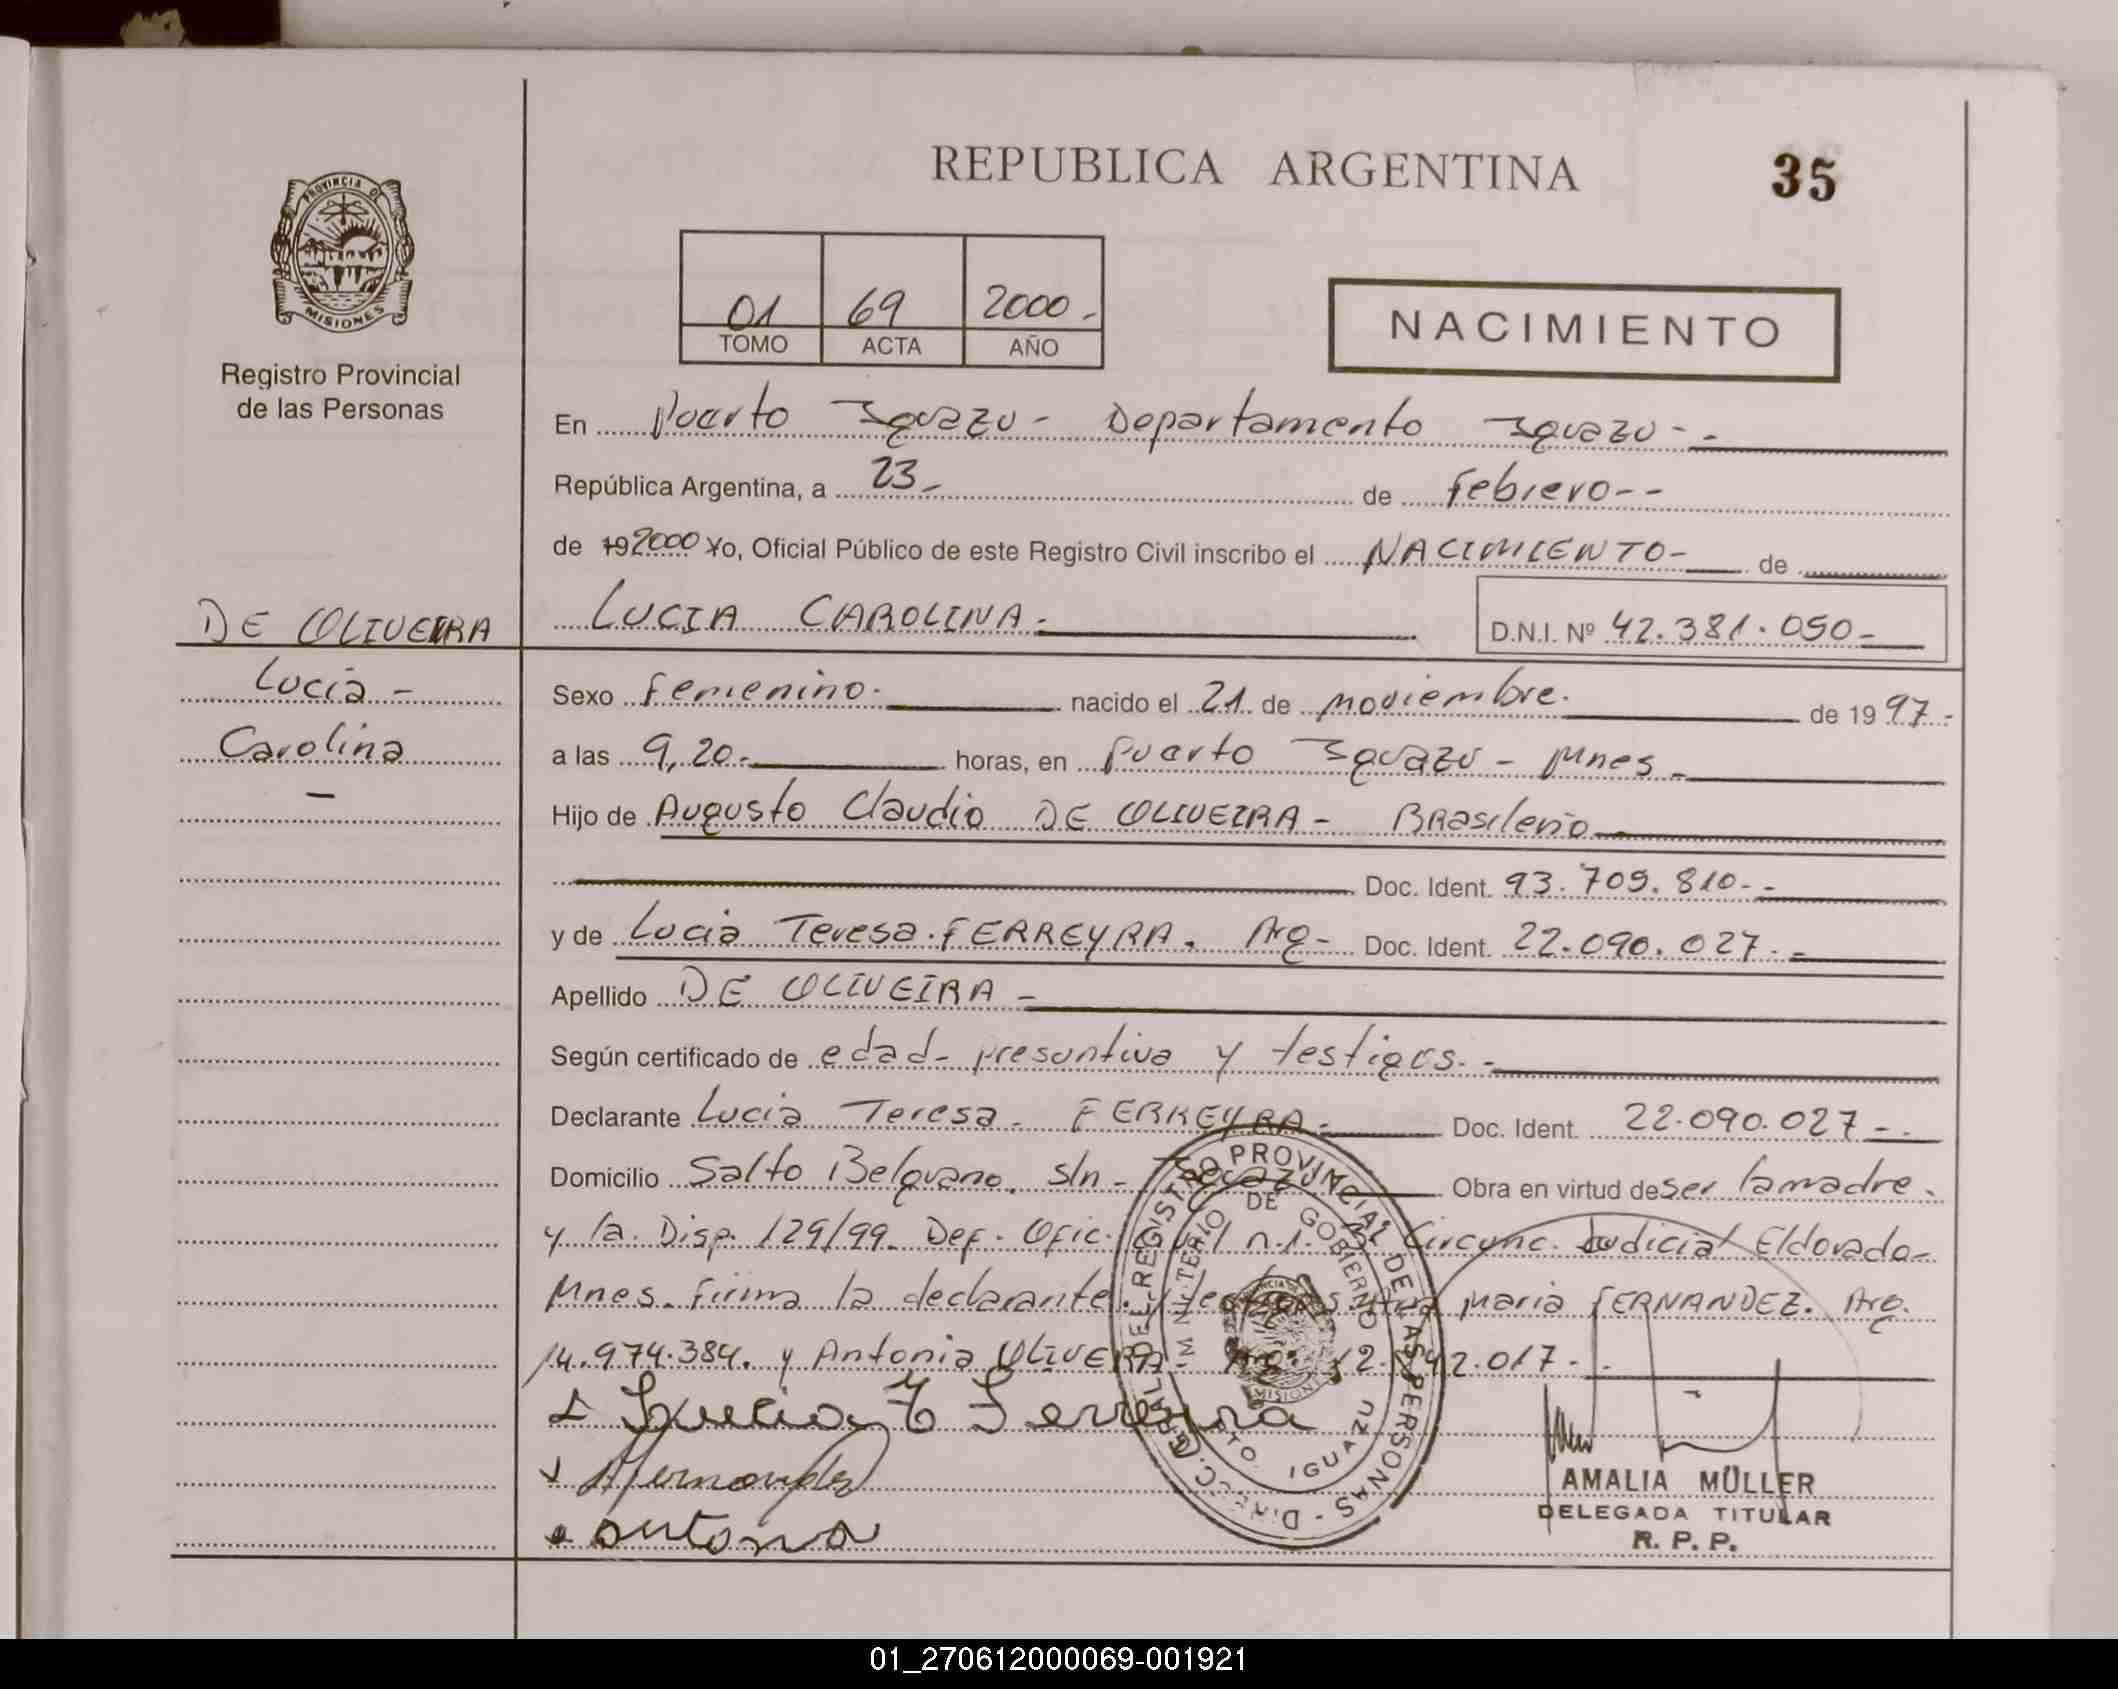 REPUBLICA ARGENTINA
35
PROVINCIA DE
MISIONES
Registro Provincial
de las Personas
01 69 2000.-
TOMO ACTA AÑO
NACIMIENTO
En Puerto Iguazu - Departamento Iguazu - -
República Argentina, a 23 - de Febrero - -
de 192000 Yo, Oficial Público de este Registro Civil inscribo el NACIMIENTO - de
DE OLIVEIRA
LUCIA CAROLINA.-
D.N.I. Nº 42.381.050 -
Lucia -
Carolina
-
Sexo Femenino.- nacido el 21 de noviembre. de 19 97.-
a las 9,20.- horas, en Puerto Iguazu - Mnes -
Hijo de Augusto Claudio DE OLIVEIRA - Brasileño -
Doc. Ident. 93.709.810.- -
y de Lucia Teresa. FERREYRA. Arg - Doc. Ident. 22.090.027.- -
Apellido DE OLIVEIRA -
Según certificado de edad - presuntiva y testigos. -
Declarante Lucia Teresa. FERREYRA - Doc. Ident. 22.090.027 - -.
Domicilio Salto Belgrano. s/n - Iguazu Obra en virtud de ser la madre.
y la Disp. 129/99. Def. Ofic. n.1. Circunc. Judicial Eldorado -
Mnes. Firma la declarante. y testigos Ana Maria FERNANDEZ. Arg.
14.974.384. y Antonia OLIVERA - Arg. 12. 42.017.-
Lucia T Ferreyra
AFernandez
antonia
DIRECC. GRAL. DEL REGISTRO PROVINCIAL DE LAS PERSONAS -
MINISTERIO DE GOBIERNO
PTO. IGUAZU
MISIONES
AMALIA MÜLLER
DELEGADA TITULAR
R. P. P.
01_270612000069-001921